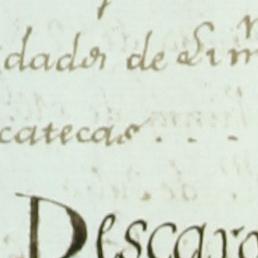 dador de Lim
catecas . . .
Descarg